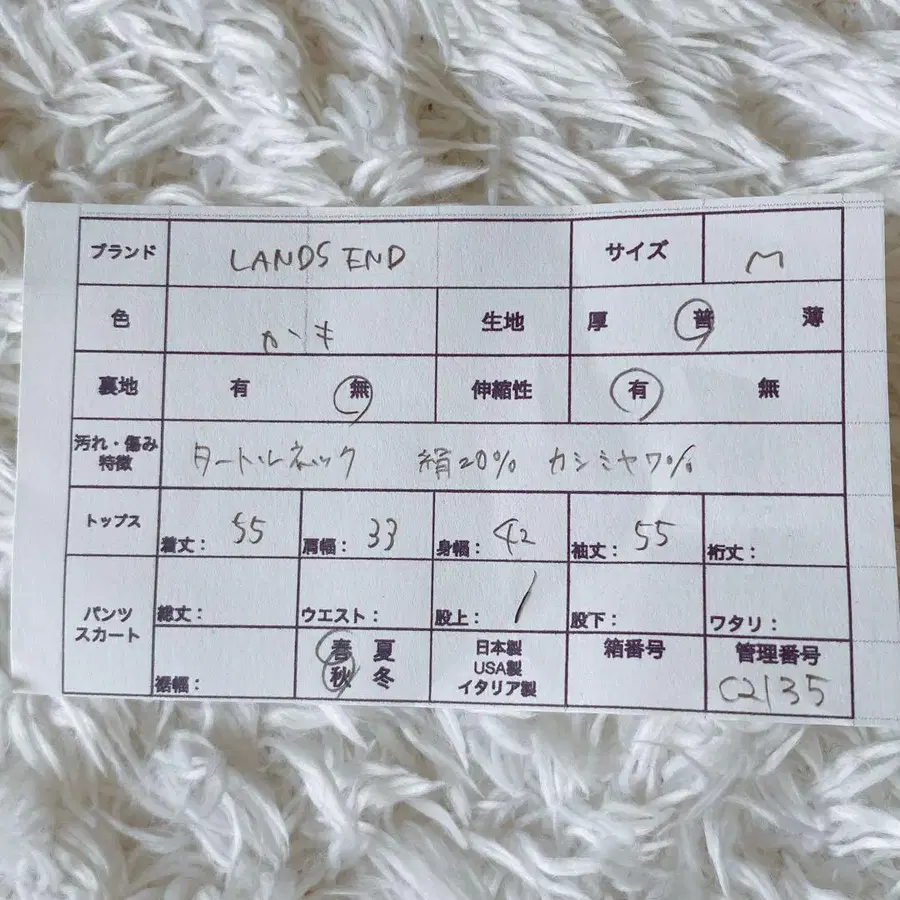 ブランド LANDS END サイズ M
色 カーキ 生地 厚 普 薄
裏地 有 無 伸縮性 有 無
汚れ・傷み
特徴 タートルネック 絹20% カシミヤ7%
トップス 着丈: 55 肩幅: 33 身幅: 42 袖丈: 55 裄丈:
パンツ
スカート 総丈: ウエスト: 股上: / 股下: ワタリ:
裾幅: 春 夏
秋 冬
日本製
USA製
イタリア製
箱番号
管理番号
C2135